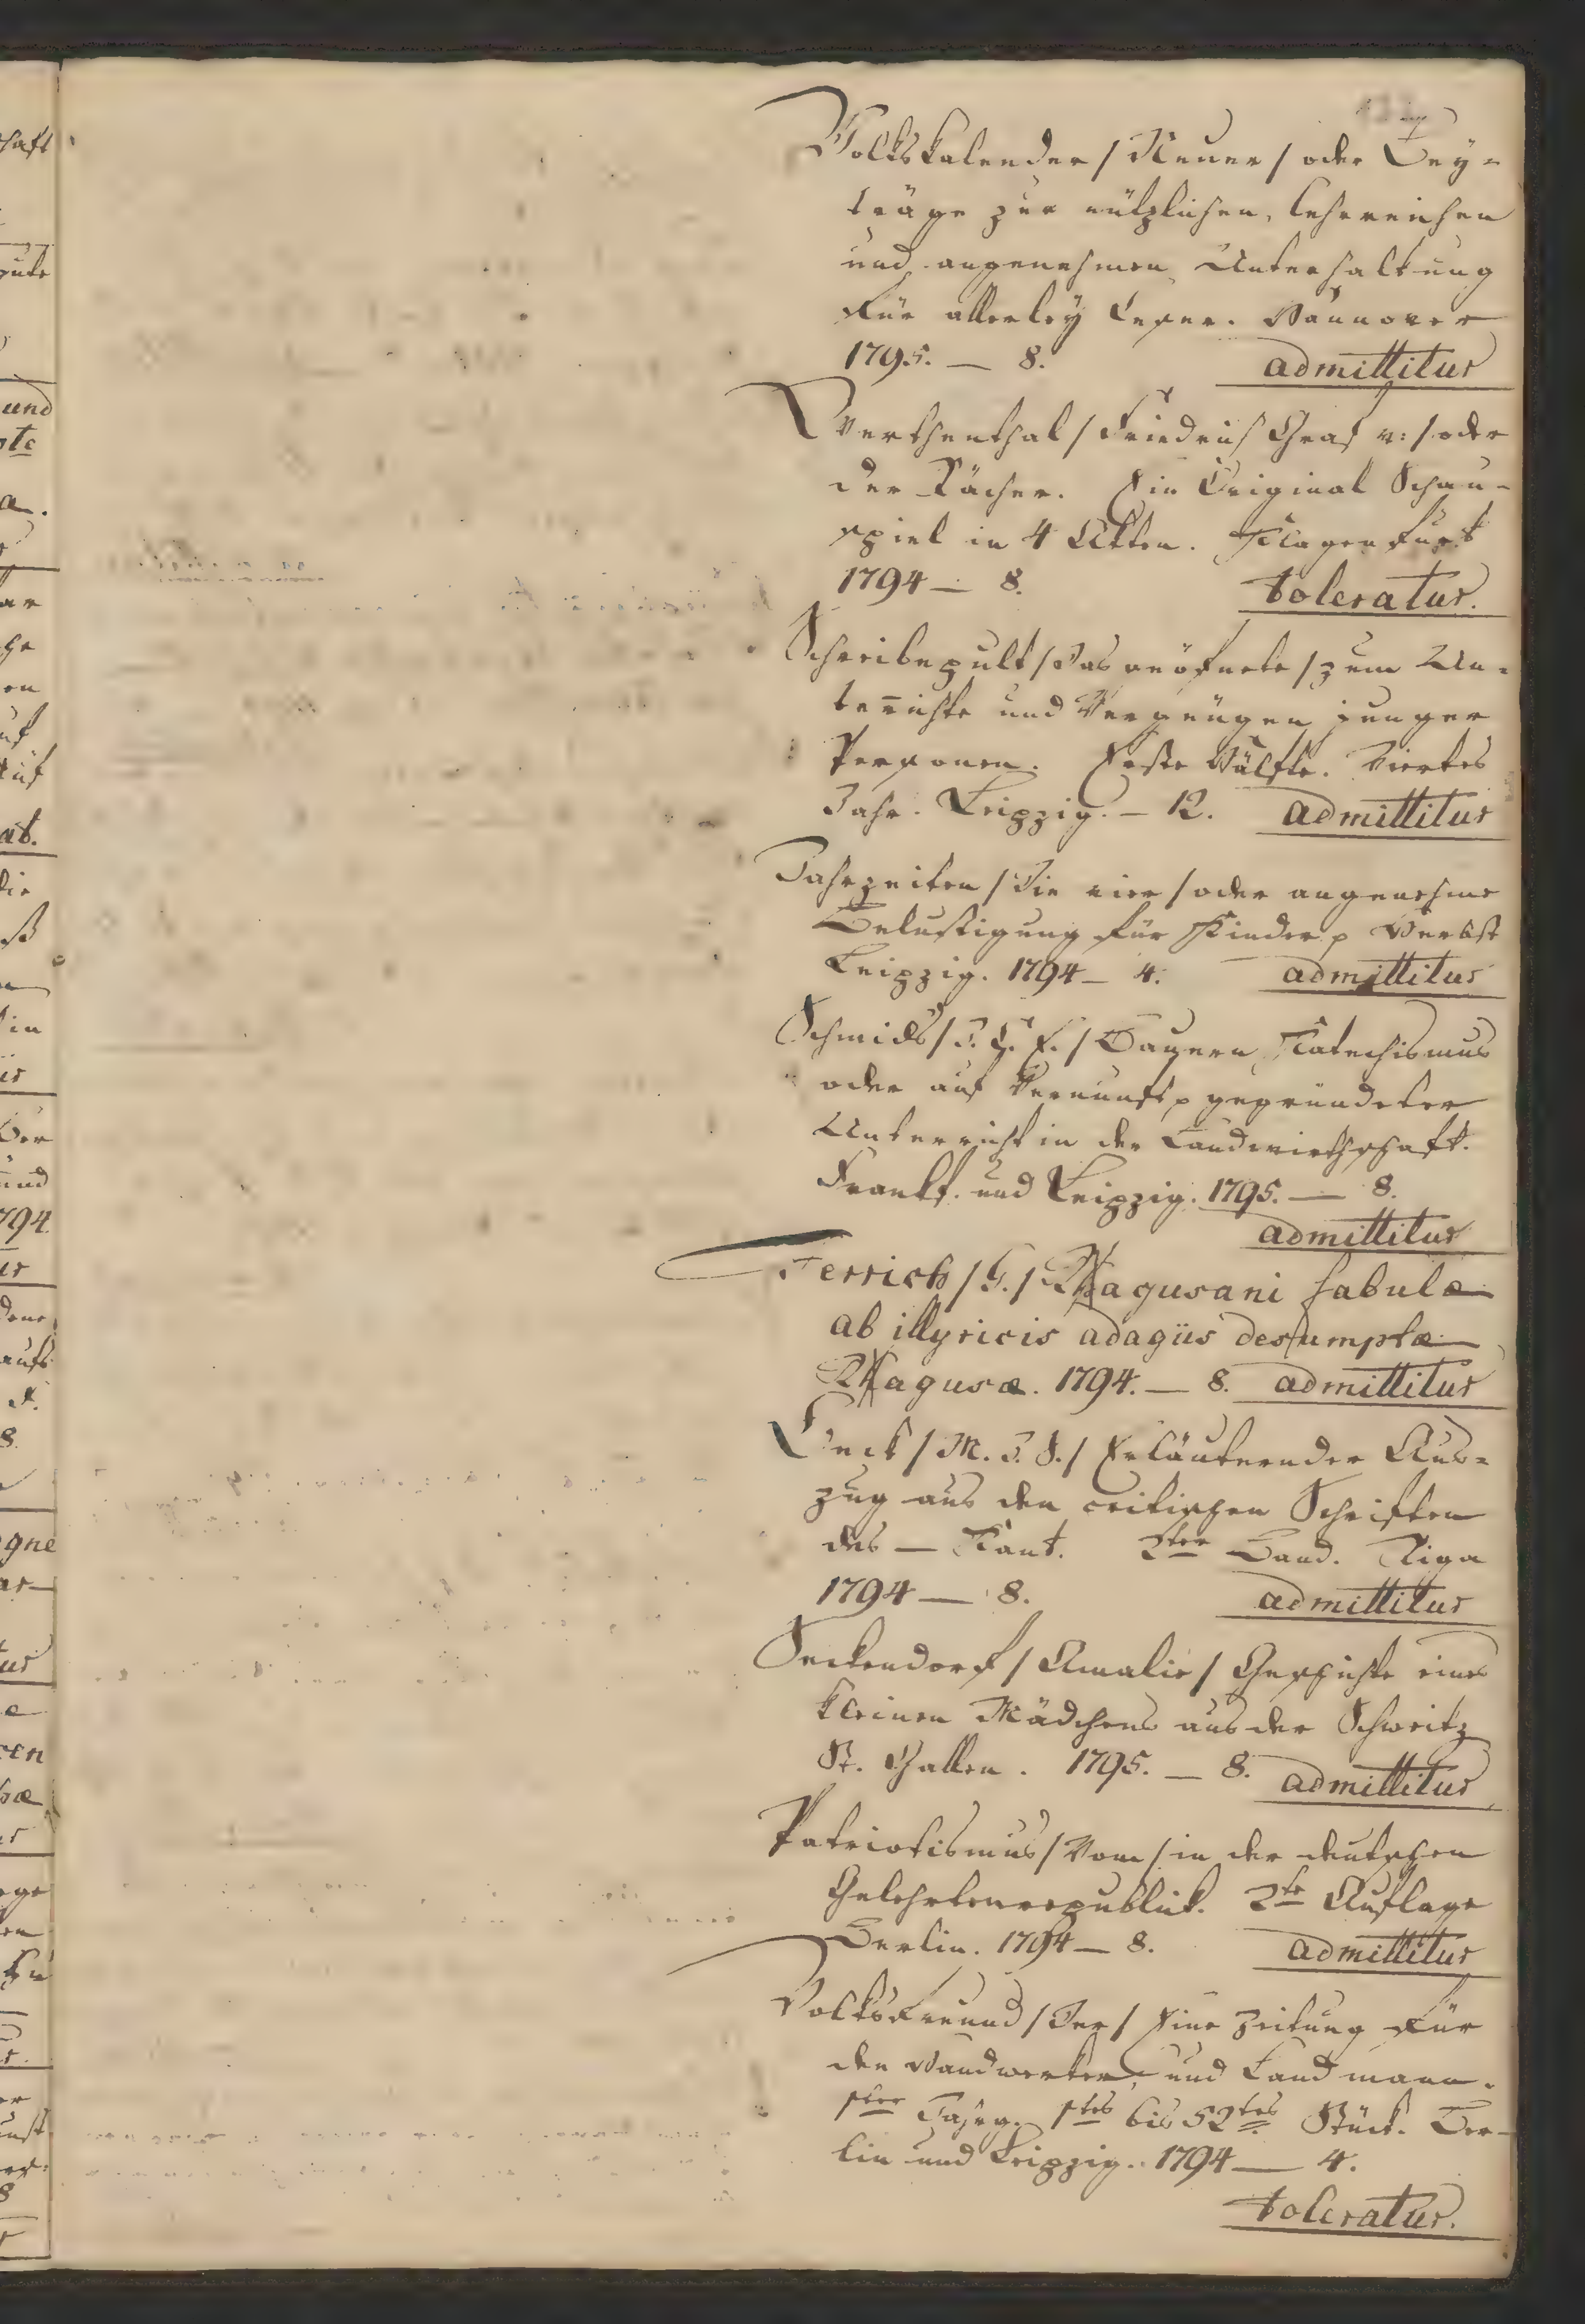 Volkskalender / Neuer / oder Bey-
träge zur nützlichen, lehrreichen
und angenehmen Unterhaltung
für allerley Leser. Hannover
1795. — 8. admittitur
Werthenthal / Friedrich Graf v: / oder
der Rächer. Ein Original Schau-
spiel in 4 Akten. Klagenfurt
1794 — 8. toleratur.
Schreibepult / Das eröfnete / zum Un-
terrichte und Vergnügen junger
Personen. Erste Hälfte. Viertes
Jahr. Leipzig. — 12. admittitur
Jahrzeiten / Die vier / oder angenehme
Belustigung für Kinder p Herbst
Leipzig. 1794 — 4. admittitur
Schmids / J. G. E. / Bauern Katechismus
oder auf Vernunft p gegründeter
Unterricht in der Landwirthschaft.
Frankf. und Leipzig. 1795. — 8.
admittitur
Ferrich / G. / Rhagusani fabulæ
ab illyricis adagiis desumptæ
Rhagusæ. 1794. — 8. admittitur
Beck / M. J. S. / Erläuternder Aus-
zug aus den critischen Schriften
des — Kant. 2ter Band. Riga
1794 — 8. admittitur
Seckendorf / Amalie / Geschichte eines
kleinen Mädchens aus der Schweitz
St. Gallen. 1795. — 8. admittitur
Patriotismus / Vom / in der deutschen
Gelehrtenrepublick. 2te Auflage
Berlin. 1794 — 8. admittitur
Volksfreund / Der / Eine Zeitung für
den Handwerker und Landmann.
1ter Jahrg. 1tes bis 52tes Stück. Ber-
lin und Leipzig. 1794 — 4.
toleratur.